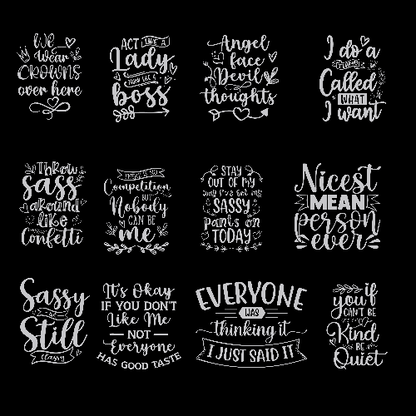 We
Wear
CROWNS
over here
ACT LIKE A
Lady
THINK LIKE A
boss
Angel
face
Devil
thoughts
I do a
thing
Called
WHAT
I want
Throw
sass
around
like
confetti
Competition
BUT
Nobody
CAN BE
me
STAY
OUT OF MY
way I've got my
SASSY
pants on
TODAY
Nicest
MEAN
person
ever
Sassy
Still
classy
It's Okay
IF YOU DON'T
Like Me
NOT
Everyone
HAS GOOD TASTE
EVERYONE
WAS
thinking it
I JUST SAID IT
if
you
CAN'T BE
Kind
BE
Quiet